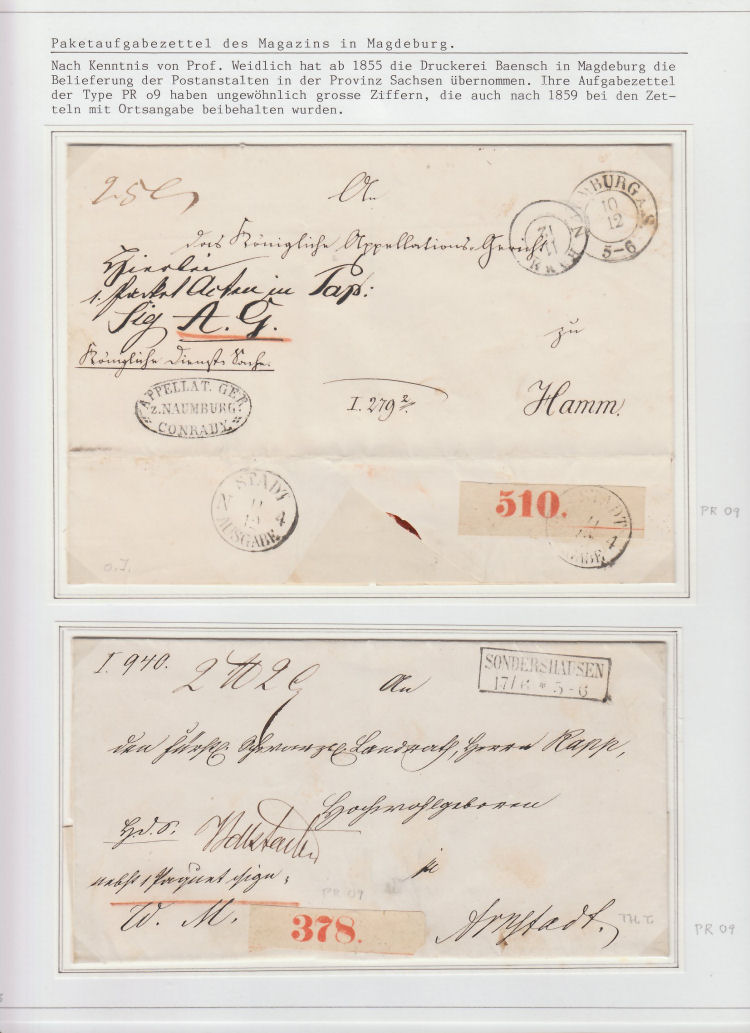 Paketaufgabezettel des Magazins in Magdeburg.
Nach Kenntnis von Prof. Weidlich hat ab 1855 die Druckerei Baensch in Magdeburg die
Belieferung der Postanstalten in der Provinz Sachsen übernommen. Ihre Aufgabezettel
der Type PR o9 haben ungewöhnlich grosse Ziffern, die auch nach 1859 bei den Zet-
teln mit Ortsangabe beibehalten wurden.
An
NAUMBURG A.S.
10
12
5-6
das Königliche Appellations-Gericht
Hierbei
1. Packet Acten in Pap:
Sig A. G.
zu
Königliche Dienst Sache.
APPELLAT. GER.
z. NAUMBURG
CONRADY.
I. 279
Hamm.
STADT
11
4
AUSGABE
510.
STADT
11
4
PR 09
I. 940.
An
SONDERSHAUSEN
17/6 * 5-6
den Fürstl. Schwarzb. Landrath, Herrn Rapp,
Hochwohlgeboren
nebst 1 Paquet sign:
PR 09
W. M.
378.
Arnstadt.
PR 09